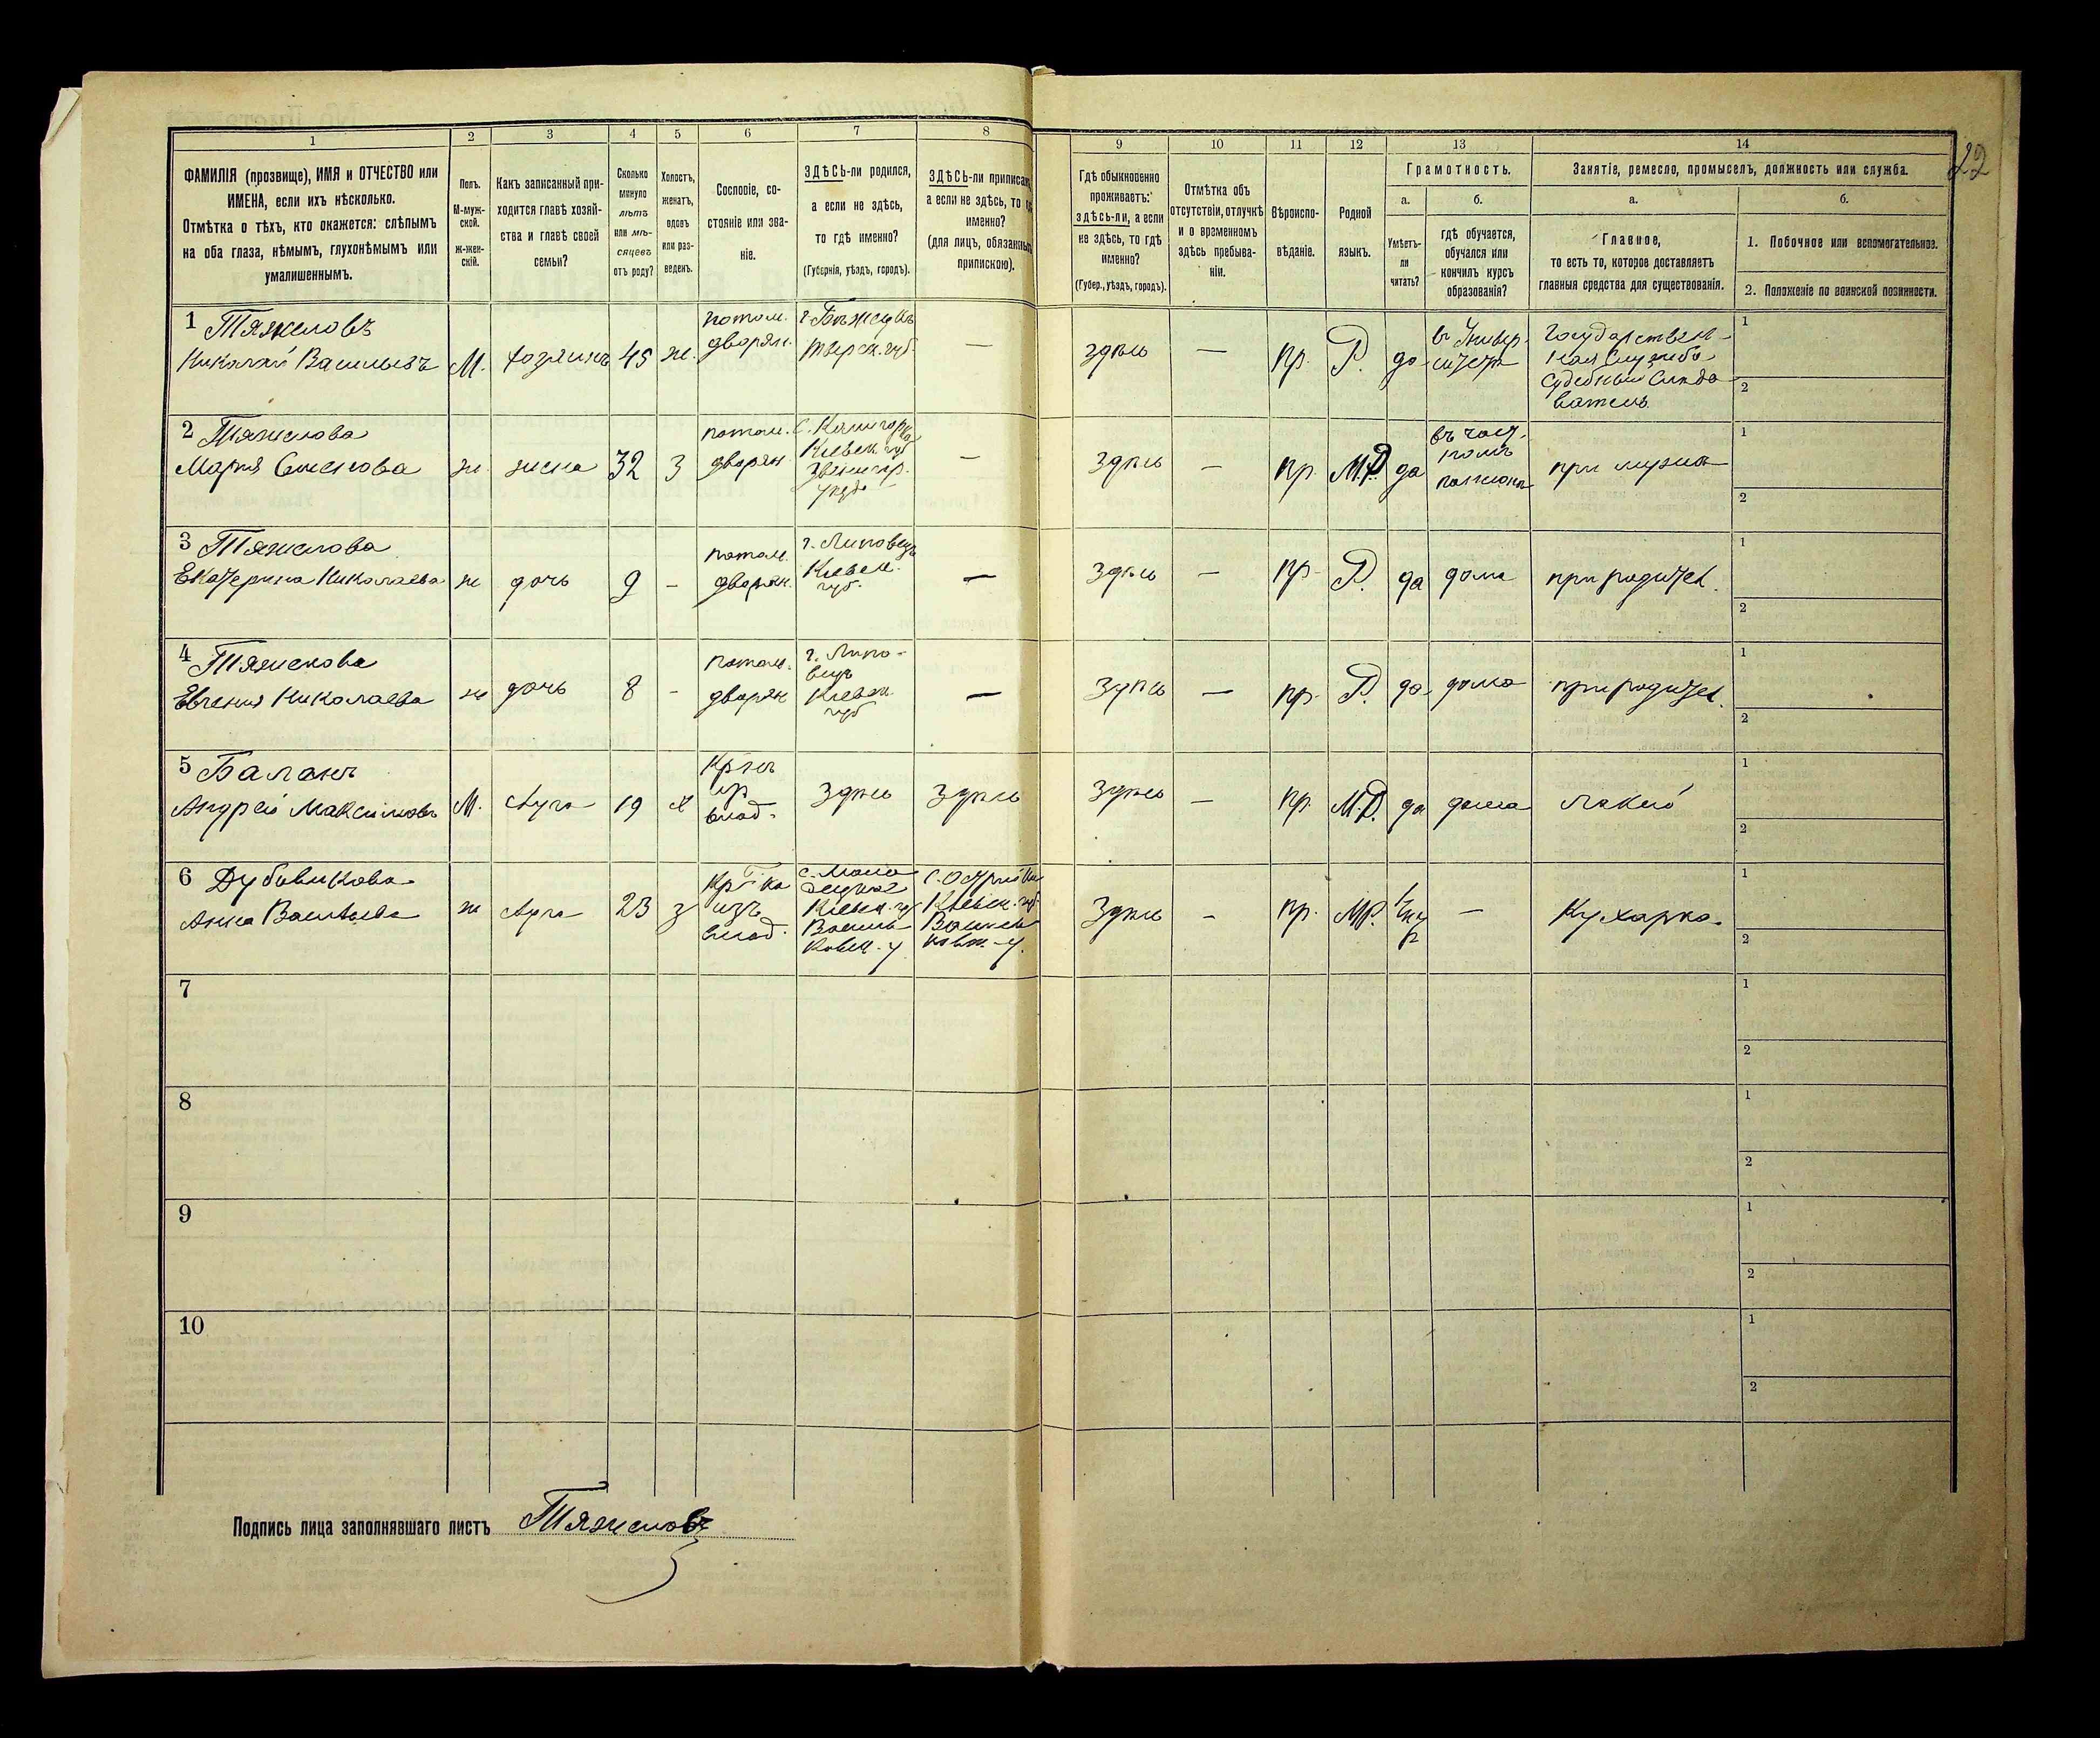 1 2 3 4 5 6 7 8 9 10 11 12 13 14
ФАМИЛІЯ (прозвище), ИМЯ и ОТЧЕСТВО или
ИМЕНА, если ихъ нѣсколько.
Отмѣтка о тѣхъ, кто окажется: слѣпымъ
на оба глаза, нѣмымъ, глухонѣмымъ или
умалишеннымъ.
Полъ.
М-муж-
ской.
Ж-жен-
скій.
Какъ записанный при-
ходится главѣ хозяй-
ства и главѣ своей
семьи?
Сколько
минуло
лѣтъ
или мѣ-
сяцевъ
отъ роду?
Холостъ,
женатъ,
вдовъ
или раз-
веденъ.
Сословіе, со-
стояніе или зва-
ніе.
ЗДѢСЬ-ли родился,
а если не здѣсь,
то гдѣ именно?
(Губернія, уѣздъ, городъ).
ЗДѢСЬ-ли приписанъ,
а если не здѣсь, то
именно?
(для лицъ, обязанныхъ
припискою).
Гдѣ обыкновенно
проживаетъ:
здѣсь-ли, а если
не здѣсь, то гдѣ
именно?
(Губер., уѣздъ, городъ).
Отмѣтка объ
отсутствіи, отлучкѣ
и о временномъ
здѣсь пребыва-
ніи.
Вѣроиспо-
вѣданіе.
Родной
языкъ.
Грамотность.
а.
Умѣетъ-
ли
читать?
б.
гдѣ обучается,
обучался или
кончилъ курсъ
образованія?
Занятіе, ремесло, промыселъ, должность или служба.
а.
Главное,
то есть то, которое доставляетъ
главныя средства для существованія.
б.
1. Побочное или вспомогательное.
2. Положеніе по воинской повинности.
22
1 Тяжеловъ
Николай Васильевъ
М.
хозяинъ
45
ж.
потом.
дворян.
г. Бѣжецкъ
Тверск. губ.
—
здѣсь
—
пр.
Р.
да
въ Универ-
ситет
Государствен-
ная Служба
Судебный Слѣдо
ватель
1
2
2 Тяжелова
Мария Семенова
ж.
жена
32
З
потом.
дворян
Кіевск. губ
Звенигор.
уезда
—
здѣсь
—
пр.
М.Р.
да
въ част.
номъ
пансіонѣ
при мужѣ
1
2
3 Тяжелова
Екатерина Николаева
ж
дочь
9
-
потом.
дворян.
г. Липовецъ
Кіевск.
губ.
—
Здѣсь
—
пр.
Р.
да
дома
при родител.
1
2
4 Тяжелова
Евгенія Николаева
ж
дочь
8
-
потом.
дворян
г. Липо-
вецъ
Кіевск.
губ
—
Здѣсь
—
пр.
Р.
да
дома
при родител.
1
2
5 Баланъ
Андрей Максимовъ
М.
слуга
19
х
Кр-нъ
изъ
влад.
Здѣсь
Здѣсь
Здѣсь
—
пр.
М.Р.
да
дома
лакей
1
2
6 Дубовикова
Анна Васильева
ж
слуга
23
з
Кр-ка
изъ
влад.
Кіевск. губ
Василь
ковск. у
Кіевск. губ
Василь
ковск. у.
Здѣсь
-
пр.
МР.
—
Кухарка.
1
2
7
1
2
8
1
2
9
1
2
10
1
2
Подпись лица заполнявшаго листъ Тяжеловъ